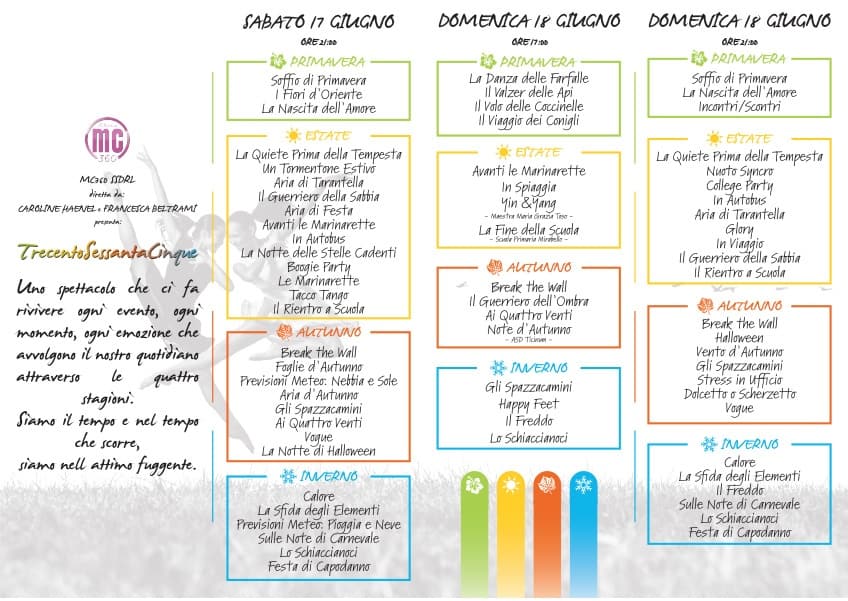 MC
360
MC360 SSDRL
diretta da:
CAROLINE HAENEL e FRANCESCA BELTRAMI
presenta:
TrecentoSessantaCinque
Uno spettacolo che ci fa
rivivere ogni evento, ogni
momento, ogni emozione che
avvolgono il nostro quotidiano
attraverso le quattro
stagioni.
Siamo il tempo e nel tempo
che scorre,
siamo nell attimo fuggente.
SABATO 17 GIUGNO
ORE 21:00
PRIMAVERA
Soffio di Primavera
I Fiori d'Oriente
La Nascita dell'Amore
ESTATE
La Quiete Prima della Tempesta
Un Tormentone Estivo
Aria di Tarantella
Il Guerriero della Sabbia
Aria di Festa
Avanti le Marinarette
In Autobus
La Notte delle Stelle Cadenti
Boogie Party
Le Marinarette
Tacco Tango
Il Rientro a Scuola
AUTUNNO
Break the Wall
Foglie d'Autunno
Previsioni Meteo: Nebbia e Sole
Aria d'Autunno
Gli Spazzacamini
Ai Quattro Venti
Vogue
La Notte di Halloween
INVERNO
Calore
La Sfida degli Elementi
Previsioni Meteo: Pioggia e Neve
Sulle Note di Carnevale
Lo Schiaccianoci
Festa di Capodanno
DOMENICA 18 GIUGNO
ORE 17:00
PRIMAVERA
La Danza delle Farfalle
Il Valzer delle Api
Il Volo delle Coccinelle
Il Viaggio dei Conigli
ESTATE
Avanti le Marinarette
In Spiaggia
Yin & Yang
- Maestra Maria Grazia Teso -
La Fine della Scuola
- Scuola Primaria Mirabello -
AUTUNNO
Break the Wall
Il Guerriero dell'Ombra
Ai Quattro Venti
Note d'Autunno
- ASD Ticinum -
INVERNO
Gli Spazzacamini
Happy Feet
Il Freddo
Lo Schiaccianoci
DOMENICA 18 GIUGNO
ORE 21:00
PRIMAVERA
Soffio di Primavera
La Nascita dell'Amore
Incontri/Scontri
ESTATE
La Quiete Prima della Tempesta
Nuoto Syncro
College Party
In Autobus
Aria di Tarantella
Glory
In Viaggio
Il Guerriero della Sabbia
Il Rientro a Scuola
AUTUNNO
Break the Wall
Halloween
Vento d'Autunno
Gli Spazzacamini
Stress in Ufficio
Dolcetto o Scherzetto
Vogue
INVERNO
Calore
La Sfida degli Elementi
Il Freddo
Sulle Note di Carnevale
Lo Schiaccianoci
Festa di Capodanno